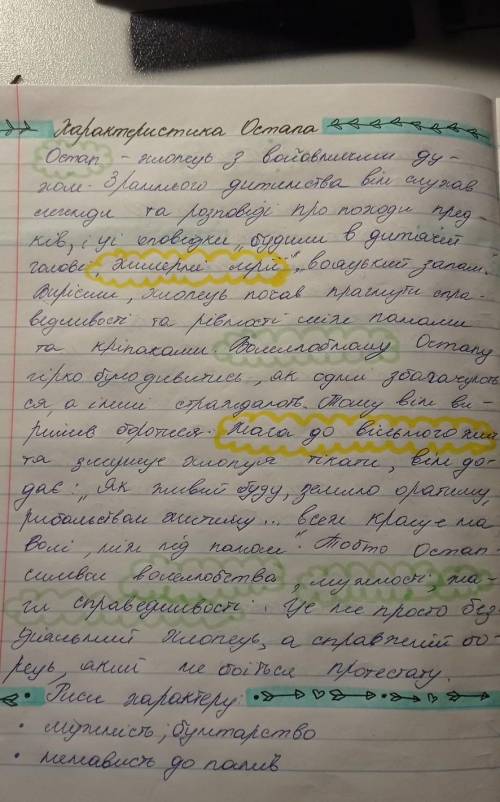 Характеристика Остапа
Остап - хлопець з войовничим ду-
хом. З раннього дитинства він слухав
легенди та розповіді про походи пред-
ків, і ці оповідки „будили в дитячій
голові „химерні мрії", козацький запал.
Вирісши, хлопець почав прагнути спра-
ведливості та рівності між панами
та кріпаками. Волелюбному Остапу
гірко було дивитись, як одни збагачують
ся, а інші страждають. Тому він ви-
рішив боротися. Жага до вільного жит
та змушує хлопця тікати, він до-
дає: „Як живий буду, землю оратиму,
рибальством житиму... все ж краще на
волі, ніж під паном". Тобто Остап-
символ волелюбства, мужності, жа-
ги справедливості. Це не просто без
діяльний хлопець, а справжній бо-
рець, який не боїться протестату.
Риси характеру:
• мужність; бунтарство
• ненависть до панів